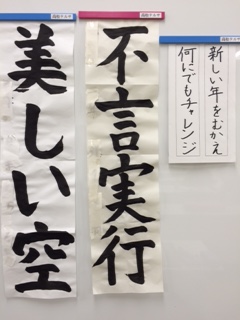 新しい年をむかえ
何にでもチャレンジ
不言実行
美しい空